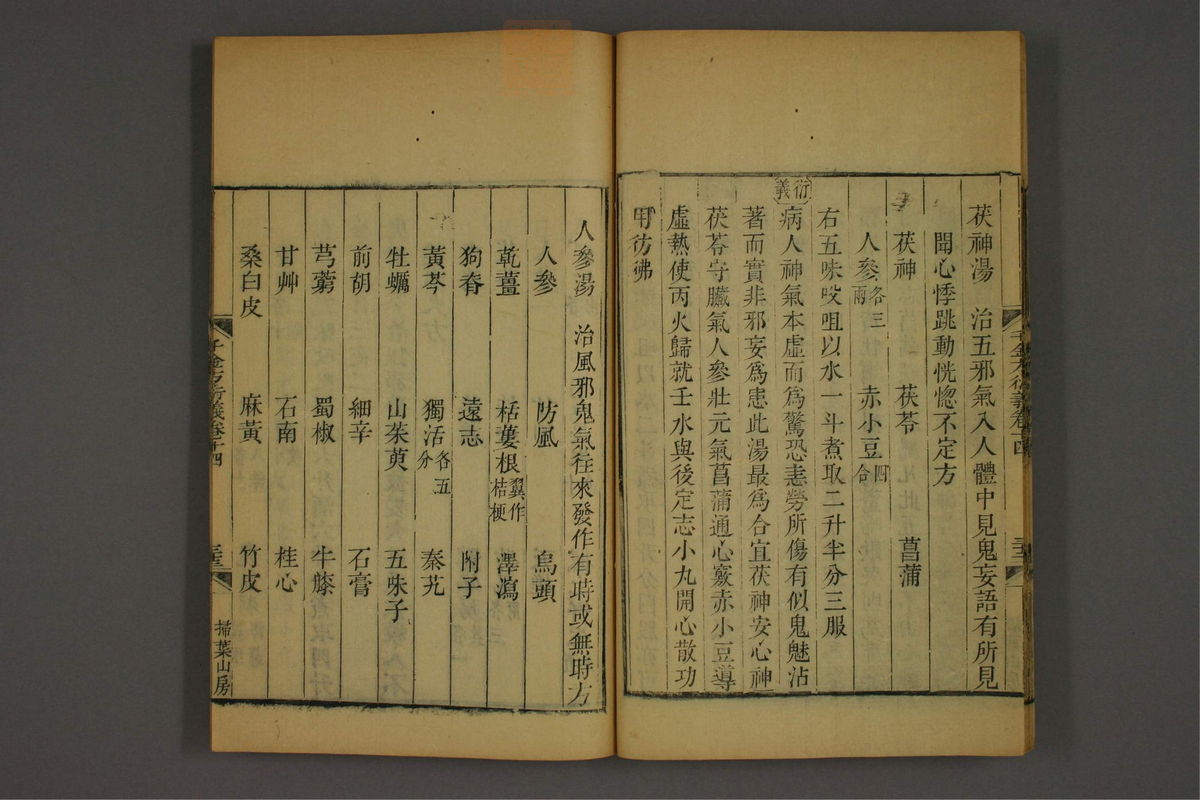 茯神湯　治五邪氣入人體中見鬼妄語有所見
聞心悸跳動恍惚不定方
茯神　茯苓　菖蒲
人參各三兩　赤小豆四合
右五味㕮咀以水一斗煮取二升半分三服
衍義
病人神氣本虛而爲驚恐恚勞所傷有似鬼魅沾
著而實非邪妄爲患此湯最爲合宜茯神安心神
茯苓守臟氣人參壯元氣菖蒲通心竅赤小豆導
虛熱使丙火歸就壬水與後定志小丸開心散功
用彷彿
人參湯　治風邪鬼氣往來發作有時或無時方
人參　防風　烏頭
乾薑　栝蔞根翼作桔梗　澤瀉
狗脊　遠志　附子
黃芩　獨活各五分　秦艽
牡蠣　山茱萸　五味子
前胡　細辛　石膏
芎藭　蜀椒　牛膝
甘艸　石南　桂心
桑白皮　麻黃　竹皮
千金方衍義卷十四
掃葉山房